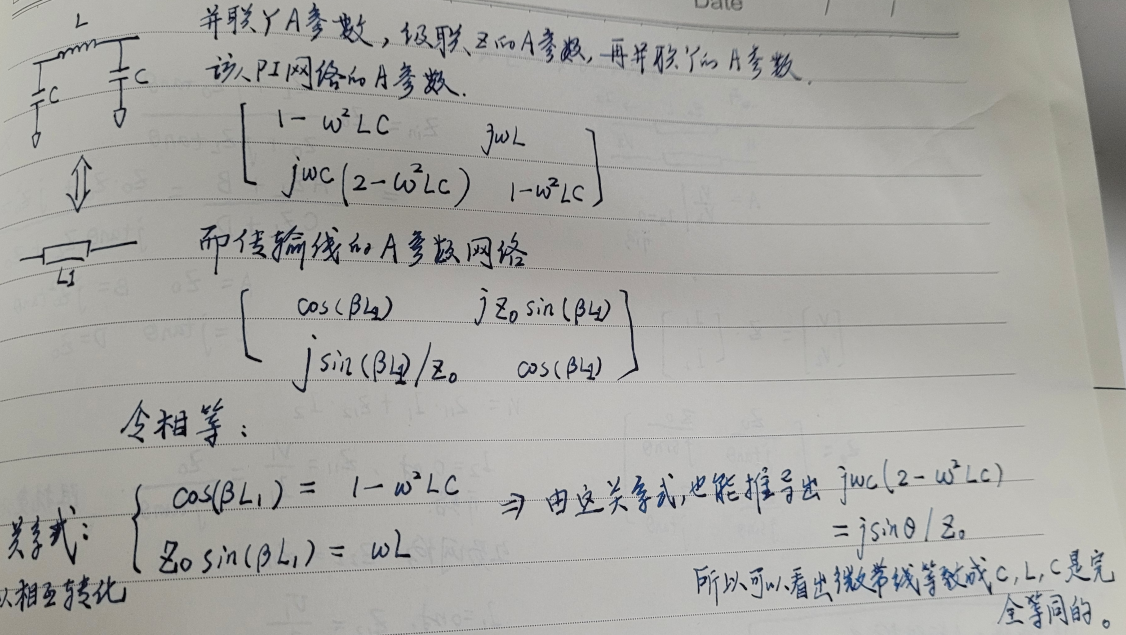 Date / /
L
C
C
并联Y A参数，级联Z的A参数，再并联Y的A参数．
该PI网络的A参数．
[ 1-ω²LC jωL
jωC(2-ω²LC) 1-ω²LC ]
L1
而传输线的A参数网络
[ cos(βL1) jZ₀sin(βL1)
jsin(βL1)/Z₀ cos(βL1) ]
令相等：
关系式：{ cos(βL₁) = 1-ω²LC ⇒ 由这关系式，也能推导出 jωC(2-ω²LC)
Z₀sin(βL₁) = ωL = jsinθ/Z₀
以相互转化
所以可以看出微带线等效成C,L,C是完
全等同的。